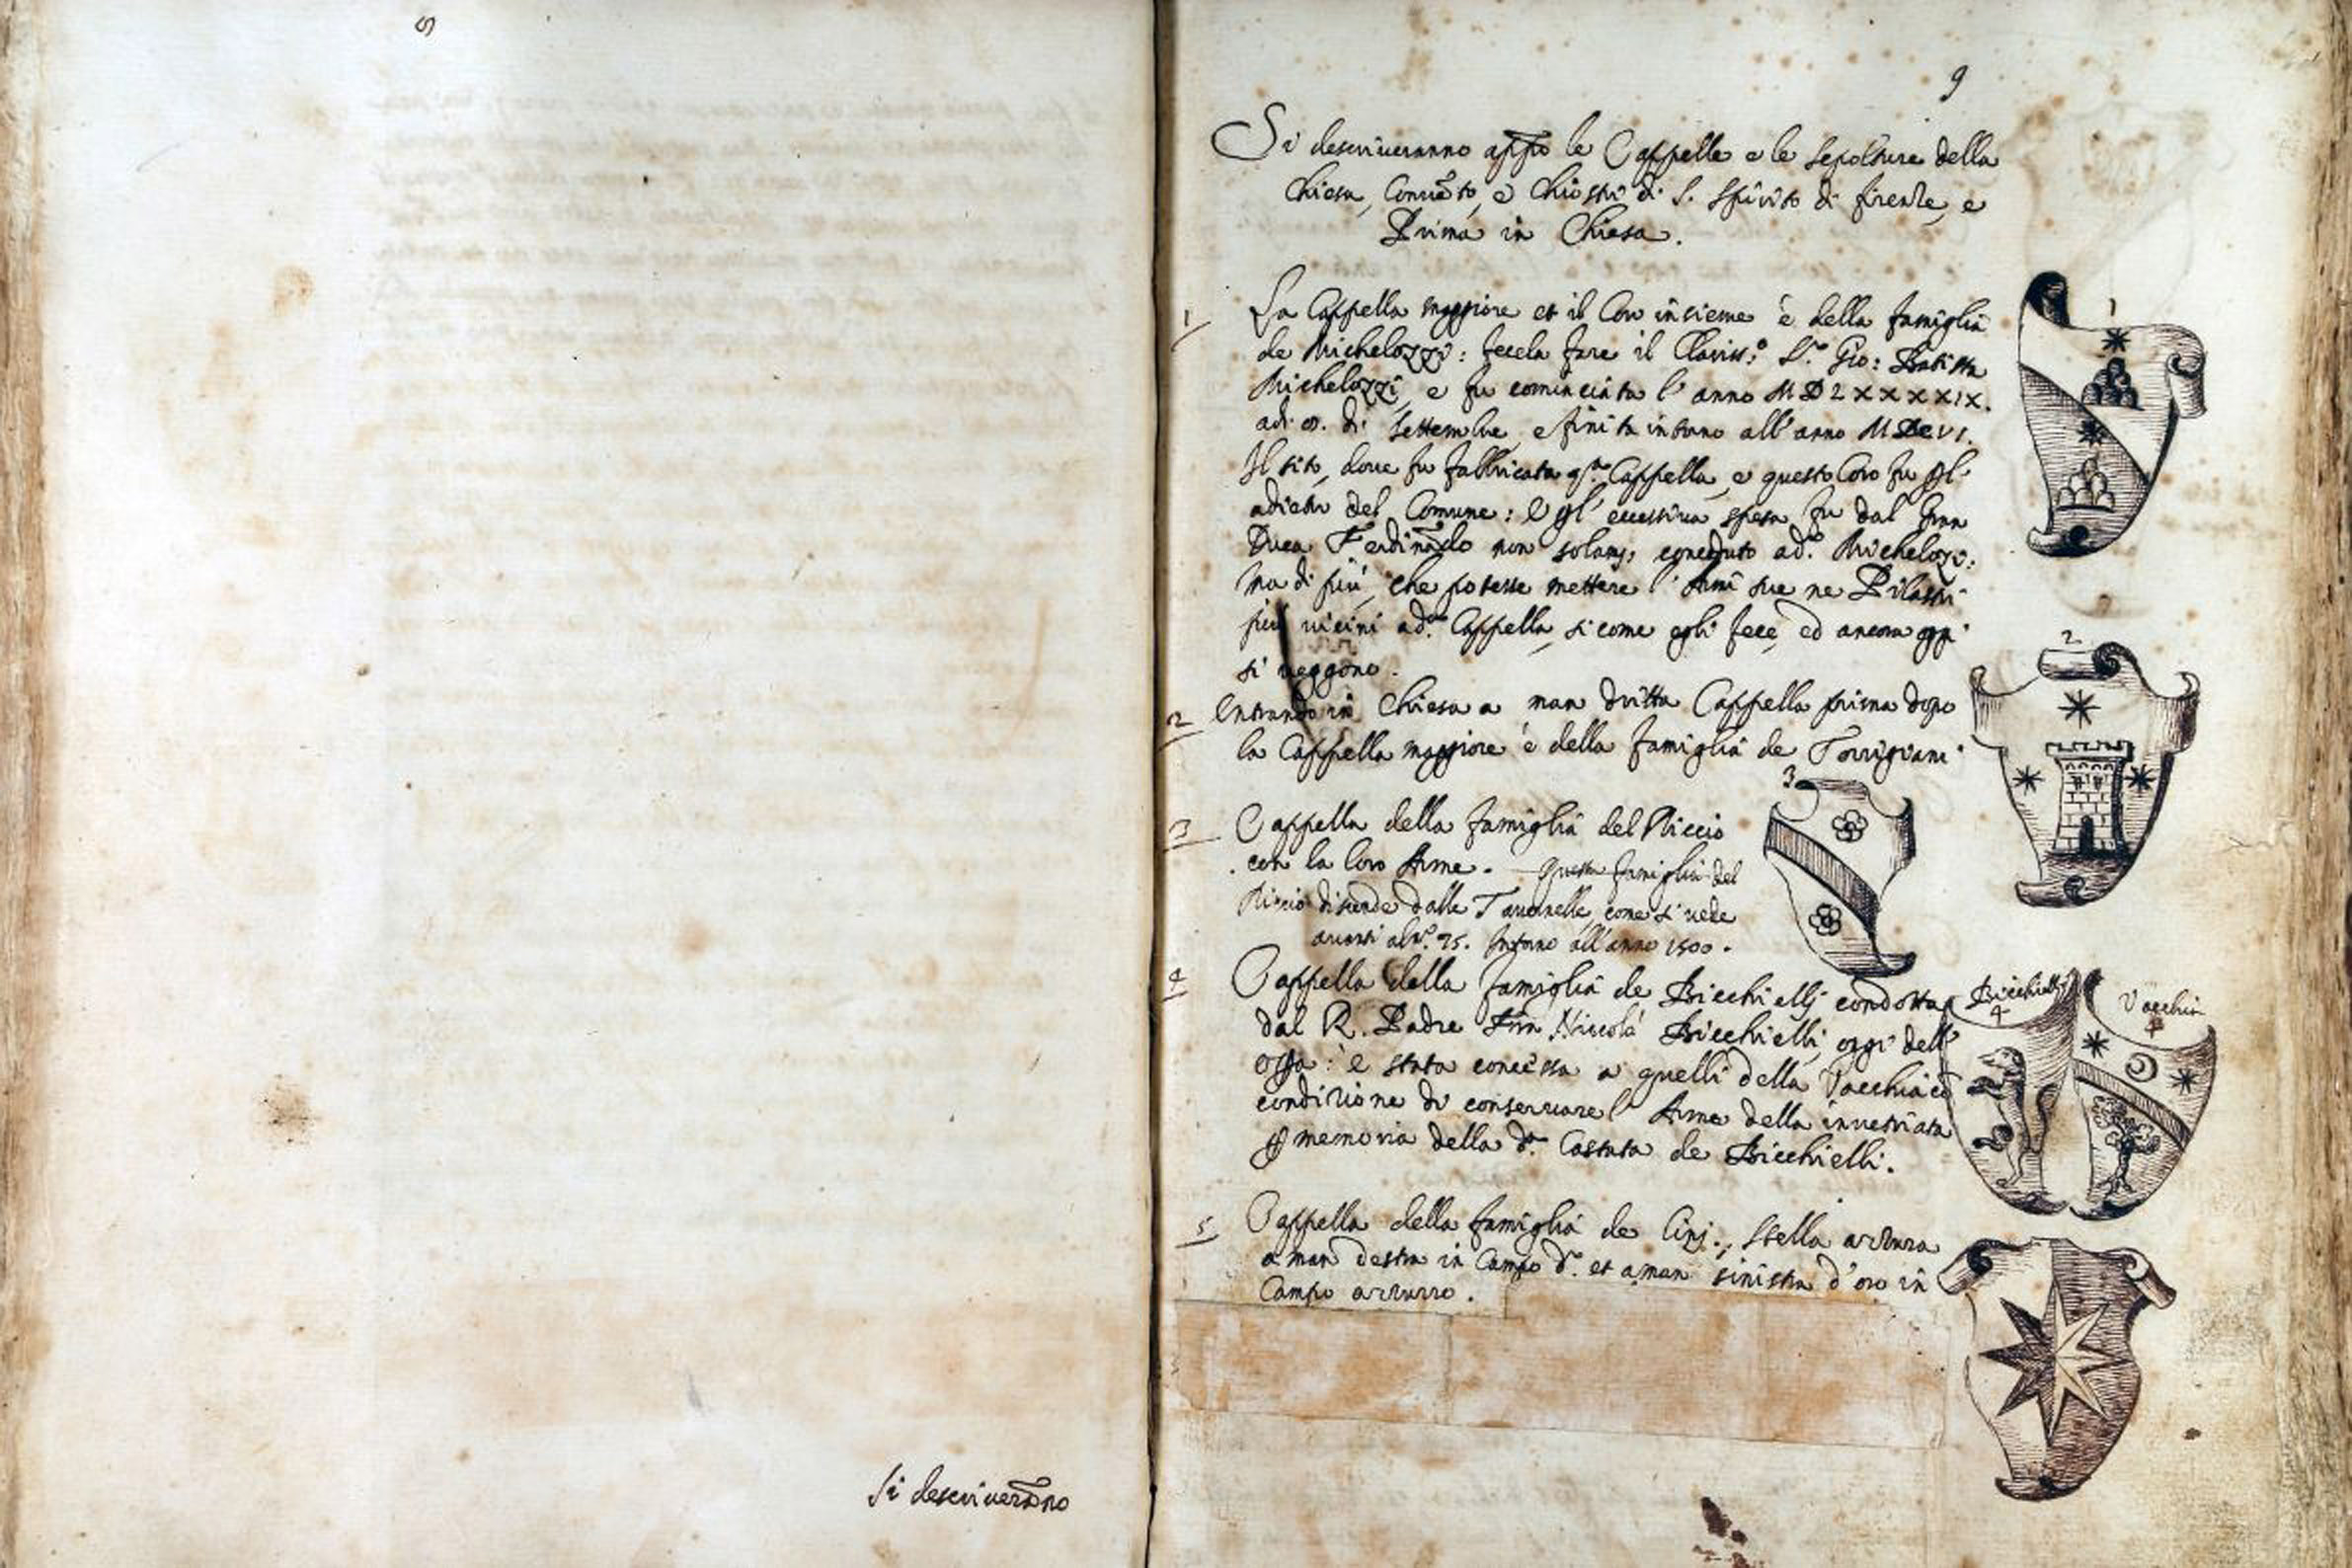 Si descriveranno
9
Si descriveranno app.o le Cappelle e le sepolture della
Chiesa, Convẽto, e Chiostri di S. Spirito di firenze, e
Prima in Chiesa.
1
La Cappella maggiore et il Coro insieme è della famiglia
de Michelozzi: fecela fare il Clariss.o S.r Gio: Batista
Michelozzi, e fu cominciata l'anno MDLXXXXIX.
adi di Settembre, e finita intorno all'anno MDCVI.
Il sito, dove fu fabbricata q.ta Cappella, e questo Coro fu
adietro del Comune: e eccessiva spesa fu dal Gran
Duca Ferdinãdo non solam, conceduto ad.o Michelozzi:
ma di più, che potesse mettere l'Armi sue ne Pilastri
più vicini ad.a Cappella, si come egli fece, ed ancora oggi
si veggono.
2
Entrando in Chiesa a man dritta Cappella prima dopo
la Cappella maggiore è della famiglia de Torrigiani
3
Cappella della famiglia del Riccio
con la loro Arme. Questa famiglia del
Riccio discende dalle Tavernelle, come si vede
avanti al n.o 95. Intorno all'anno 1500.
4
Cappella della famiglia de Bicchielli condotta
dal R. Padre Fra Niccolà Bicchielli, oggi dell'
è stata concessa a quelli della Vacchia cõ
condizione di conservare l'Arme della invetriata
memoria della d.a Casata de Bicchielli.
5
Cappella della famiglia de Cini., Stella azzurra
a man destra in Campo d. et a man sinistra d'oro in
Campo azzurro.
1
2
3
Bicchielli
4
Vacchia
4